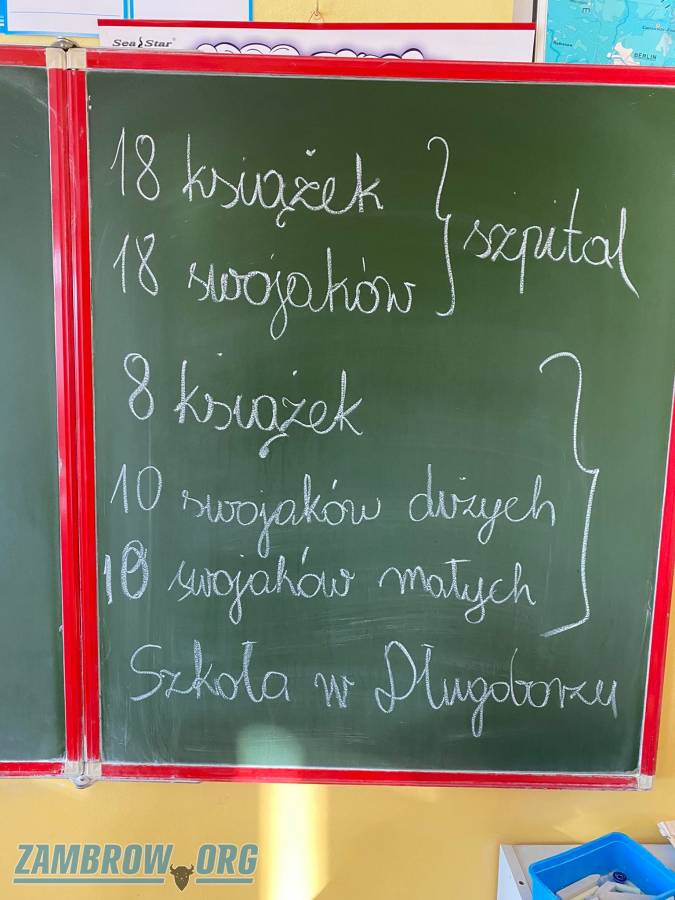 Sea Star®
BERLIN
18 książek
18 swojaków } szpital
8 książek
10 swojaków dużych
10 swojaków małych }
Szkoła w Długoborzu
ZAMBROW.ORG